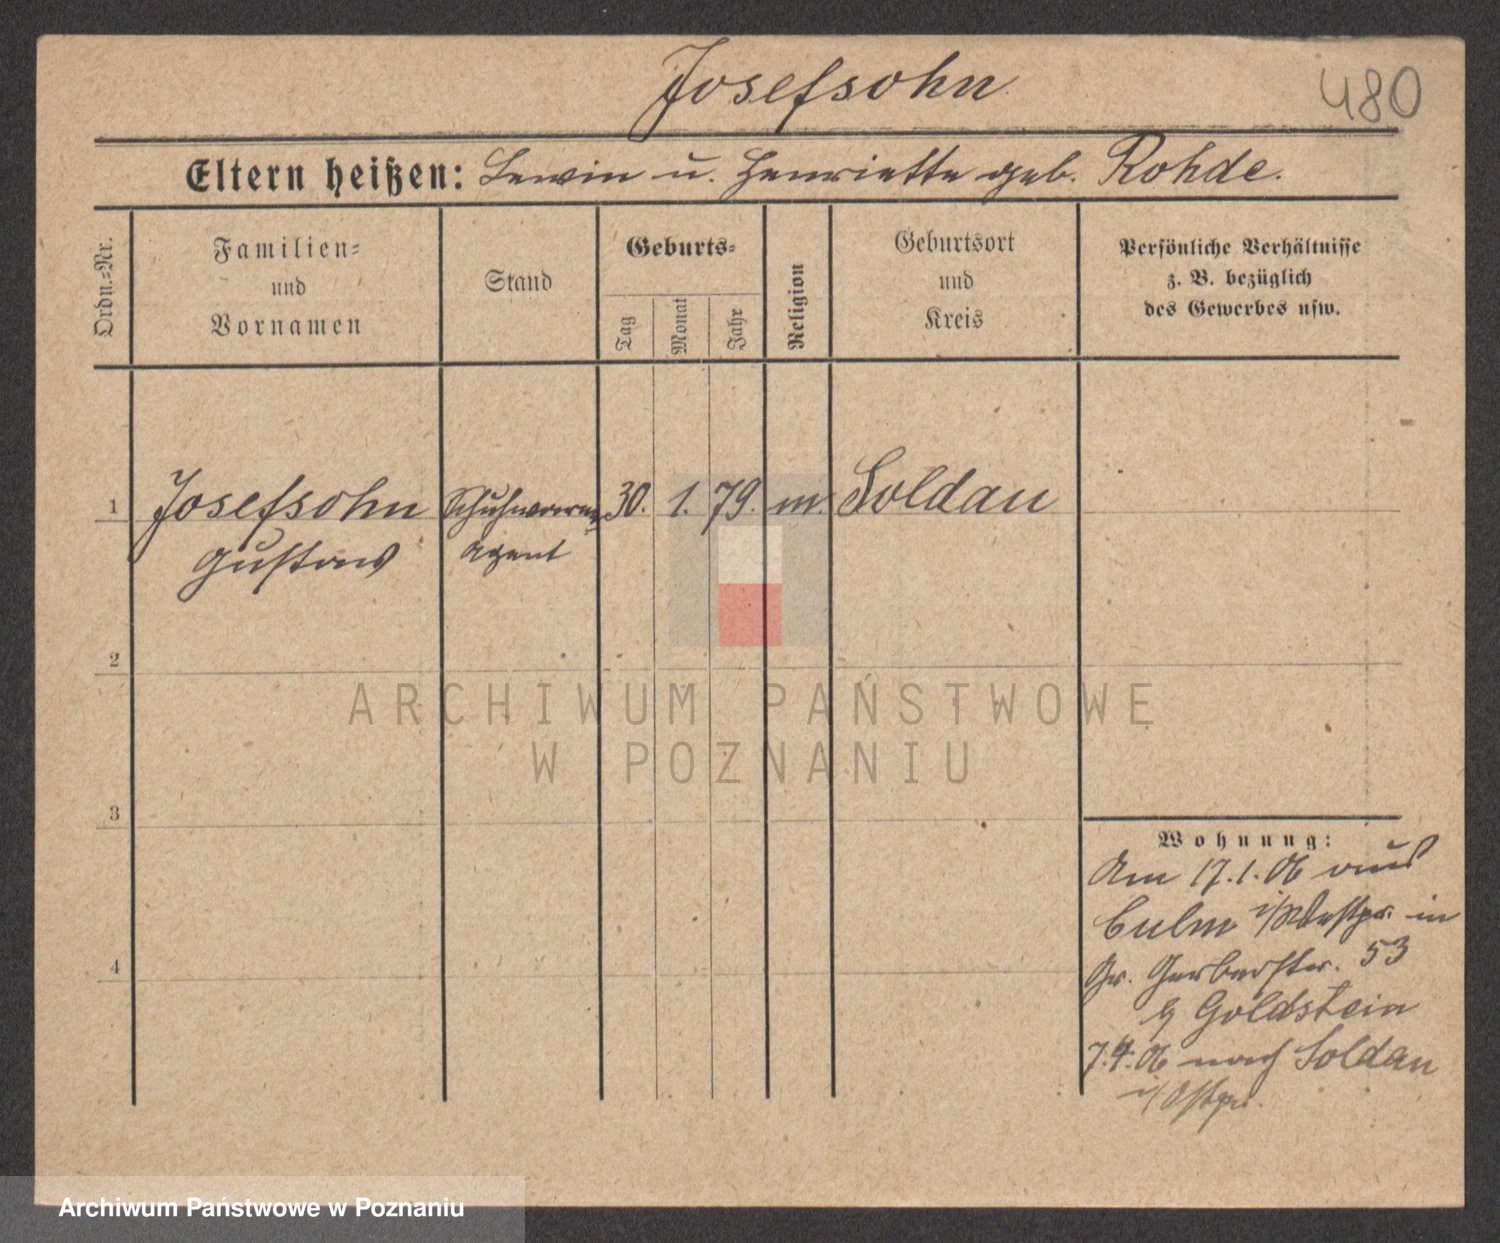 Josefsohn
480
Eltern heißen: Lewin u. Henriette geb. Rohde.
Ordn.-Nr.
Familien-
und
Vornamen
Stand
Geburts-
Tag
Monat
Jahr
Religion
Geburtsort
und
Kreis
Persönliche Verhältnisse
z. B. bezüglich
des Gewerbes usw.
1
Josefsohn
Gustav
Schuhwaren
Agent
30. 1. 79. m. Soldau
2
3
4
Wohnung:
Am 17.1.06 aus
Culm i/Westpr. in
Gr. Gerberstr. 53
b/ Goldstein
7.4.06 nach Soldau
i/Ostpr.
ARCHIWUM PAŃSTWOWE
W POZNANIU
Archiwum Państwowe w Poznaniu